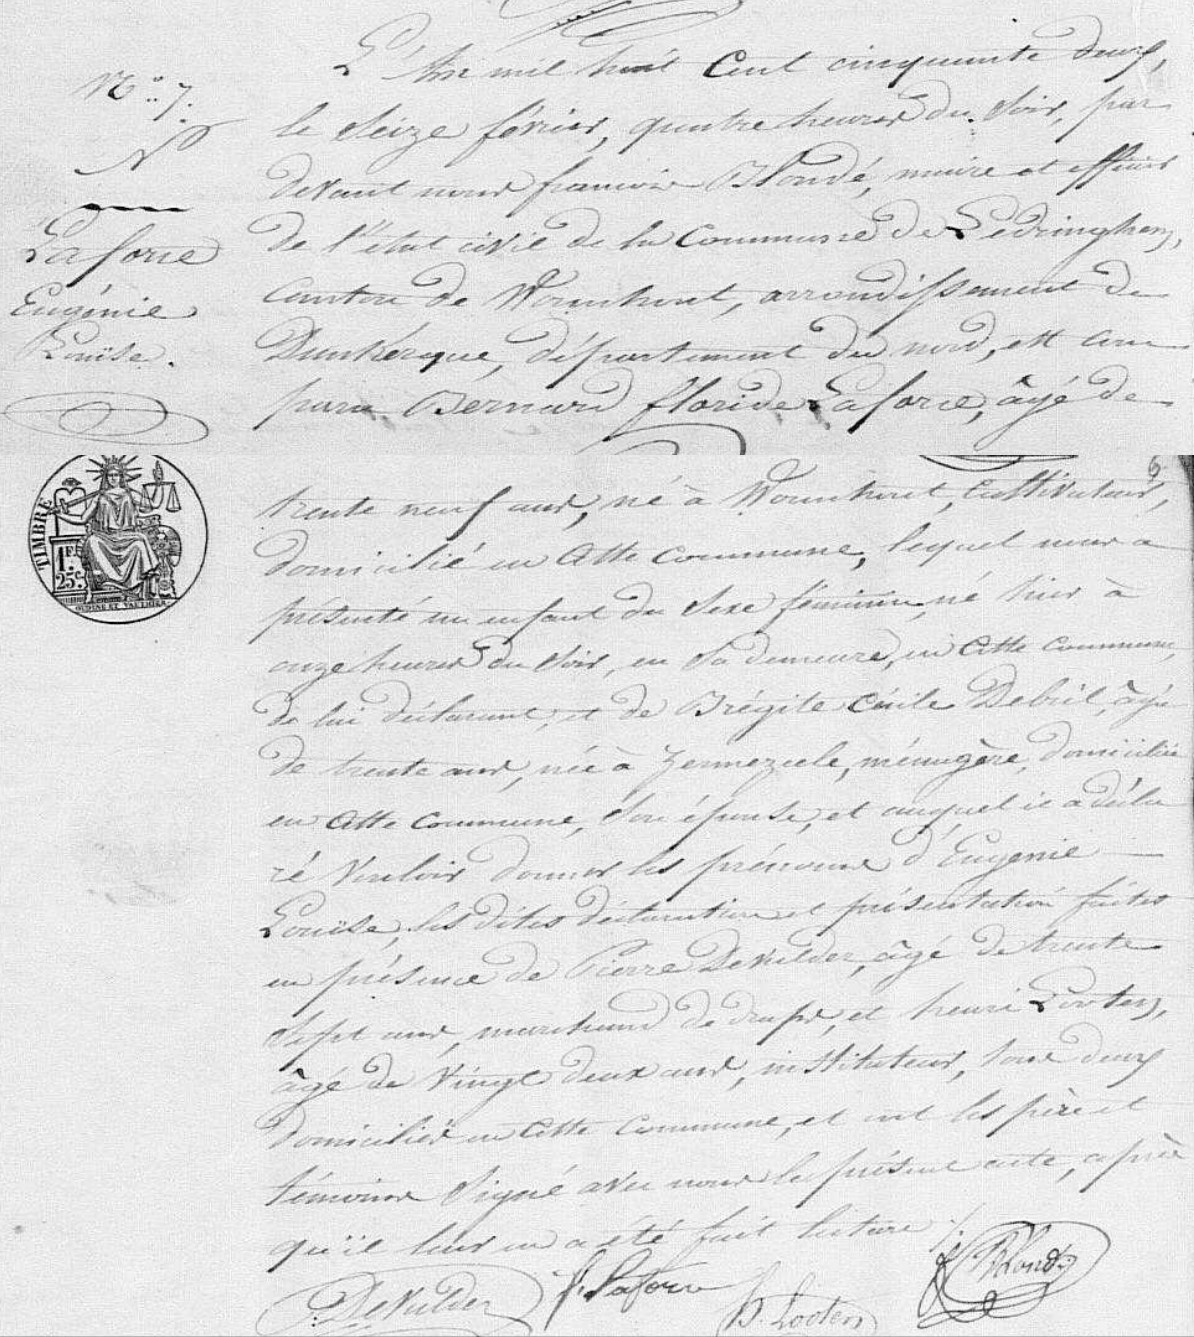 N.° 7.
N
Laforce
Eugénie
Louïse.
L'An mil huit Cent cinquante deux,
le Seize février, quatre heures du Soir, par
devant nous françois Blondé, maire et officier
de l'état civil de la Commune de Lédringhem,
Canton de Wormhout, arrondissement de
Dunkérque, département du nord, est com
paru Bernard floride Laforce, âgé de
6
TIMBRE
1 F.
25 c.
trente neuf ans, né à Wormhout, Cultivateur,
domicilié en Cette Commune, lequel nous a
présenté un enfant du Sexe féminin, né hier à
onze heures du Soir, en Sa demeure, en Cette Commune,
de lui déclarant, et de Brégite Cécile Debril, âgée
de trente ans, née à Zermezeele, ménagère, domiciliée
en Cette Commune, Son épouse, et auquel il a décla
ré Vouloir donner les prénoms d'Eugénie
Louïse, les dites déclaration et présentation faites
en présence de Pierre DeVulder, âgé de trente
Sept ans, marchand de draps, et henri Looten,
âgé de Vingt deux ans, instituteur, tous deux
domiciliés en Cette Commune, et ont les père et
témoins Signé avec nous le présent acte, après
qu'il leur en a été fait lecture ./.
DeVulder
f. Laforce
H. Looten
f Blondé